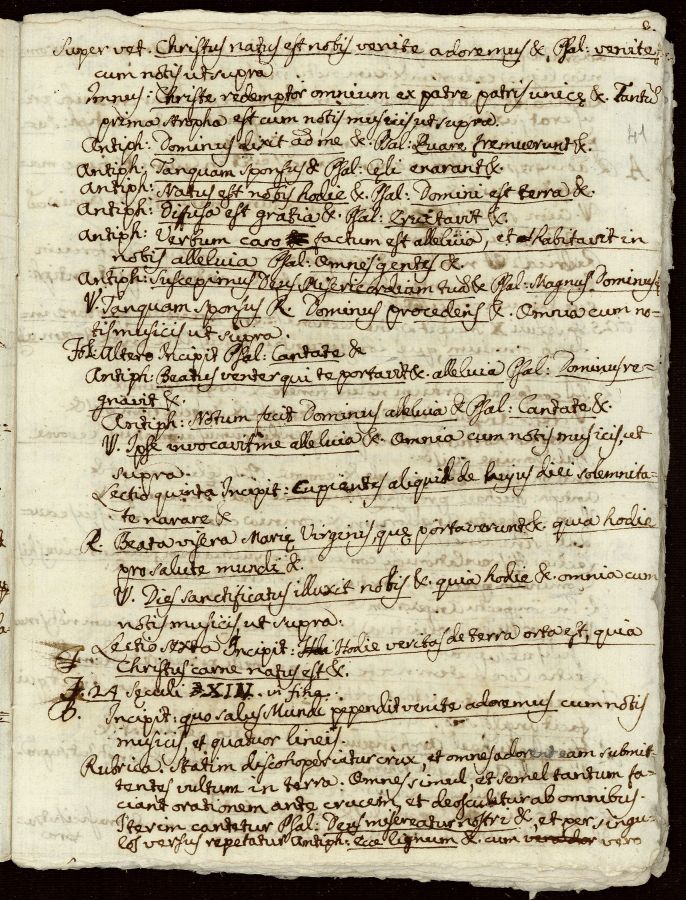 Super vet. Christus natus est nobis venite adoremus &. Psal: venite
cum notis ut supra
Imnus: Christe redemptor omnium ex patre patris unicę &. Tantũ
prima stropha est cum notis musicis ut supra.
Antiph: Dominus dixit ad me &. Psal: Quare fremuerunt &.
41
Antiph: Tanquam Sponsus & Psal: Cęli enarant &.
Antiph: Natus est nobis hodie &. Psal: Domini est terra &.
Antiph: Difusa est gratia &. Psal: Eructavit &.
Antiph: Verbum caro factum est alleluia, et habitavit in
nobis alleluia Psal: Omnes gentes &.
Antiph: Suscepimus Deus Misericordiam tuã & Psal: Magnus Dominus
V. Tanquam Sponsus R. Dominus procedens &. Omnia cum no-
tis musicis ut supra.
Fol: Altero Incipit Psal: Cantate &
Antiph: Beatus venter qui te portavit &. alleluia Psal: Dominus re-
gnavit &.
Antiph: Notum fecit Dominus alleluia & Psal: Cantate &.
V. Ipse invocavit me alleluia &. Omnia cum notis musicis, ut
supra.
Lectio quinta Incipit: Cupientes aliquid de hujus diei solemnita-
te narare &
R. Beata visera Marię Virginis, quę portaverunt &. quia hodie
pro salute mundi &.
V. Dies sanctificatus illuxit nobis &. quia hodie &. omnia cum
notis musicis ut supra.
Lectio sexta Incipit: Hodie veritas de terra orta est, quia
Christus carne natus est &.
F. 24 Seculi XIII. in fine.
B. Incipit: quo salus Mundi pependit venite adoremus cum notis
musicis, et quatuor lineis.
Rubrica. Statim discohoperiatur crux, et omnes adorent eam submit-
tentes vultum in terra. Omnes simul, et semel tantum fa-
ciant orationem ante crucem, et deosculetur ab omnibus.
Iterim cantetur Psal: Deus misereatur nostri &, et per singu-
los versus repetatur Antiph: Ecce lignum &. cum vero